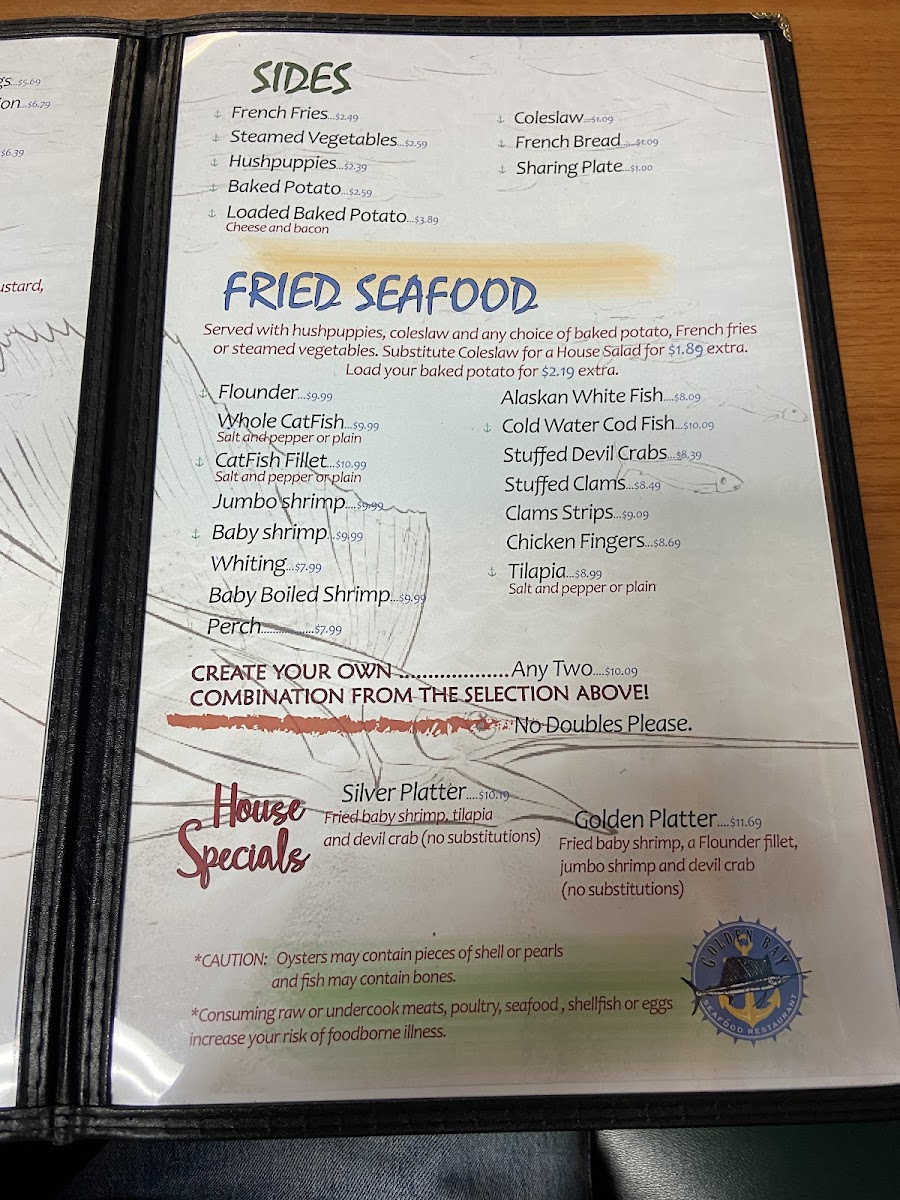 gs...$5.69
ion...$6.79
$6.39
ustard,
SIDES
French Fries...$2.49
Steamed Vegetables...$2.59
Hushpuppies...$2.39
Baked Potato...$2.59
Loaded Baked Potato...$3.89
Cheese and bacon
Coleslaw...$1.09
French Bread....$1.09
Sharing Plate...$1.00
FRIED SEAFOOD
Served with hushpuppies, coleslaw and any choice of baked potato, French fries
or steamed vegetables. Substitute Coleslaw for a House Salad for $1.89 extra.
Load your baked potato for $2.19 extra.
Flounder...$9.99
Whole CatFish...$9.99
Salt and pepper or plain
CatFish Fillet...$10.99
Salt and pepper or plain
Jumbo shrimp....$9.99
Baby shrimp...$9.99
Whiting...$7.99
Baby Boiled Shrimp...$9.99
Perch.................$7.99
Alaskan White Fish....$8.09
Cold Water Cod Fish...$10.09
Stuffed Devil Crabs...$8.39
Stuffed Clams...$8.49
Clams Strips...$9.09
Chicken Fingers...$8.69
Tilapia...$8.99
Salt and pepper or plain
CREATE YOUR OWN ....................Any Two....$10.09
COMBINATION FROM THE SELECTION ABOVE!
No Doubles Please.
House
Specials
Silver Platter....$10.19
Fried baby shrimp, tilapia
and devil crab (no substitutions)
Golden Platter....$11.69
Fried baby shrimp, a Flounder fillet,
jumbo shrimp and devil crab
(no substitutions)
*CAUTION: Oysters may contain pieces of shell or pearls
and fish may contain bones.
*Consuming raw or undercook meats, poultry, seafood , shellfish or eggs
increase your risk of foodborne illness.
GOLDEN BAY
SEAFOOD RESTAURANT